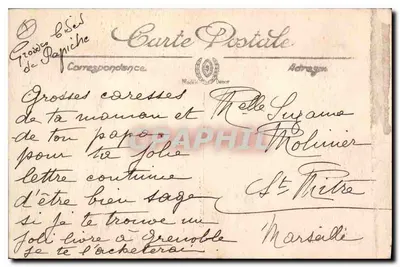 Grosses bises
de Papiche
Carte Postale
Correspondance
Adresse
Grosses caresses
de ta maman et
de ton papa
pour ta jolie
lettre continue
d'être bien sage
si je te trouve un
joli livre à Grenoble
je te l'achèterai
Melle Suzanne
Molinier
St Mitre
Marseille
CPAPHIL.COM